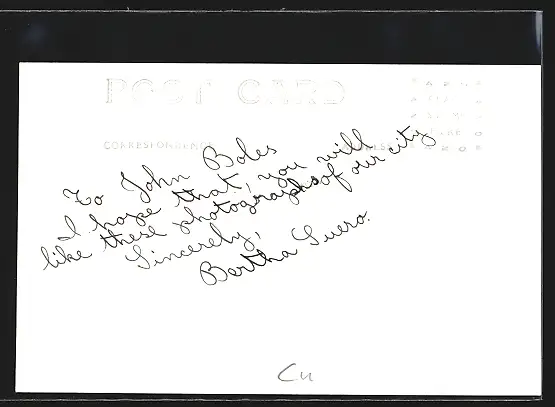 POST CARD
CORRESPONDENCE
ADDRESS
To John Boles
I hope that, you will
like these photographs of our city
Sincerely,
Bertha Luera.
Cu